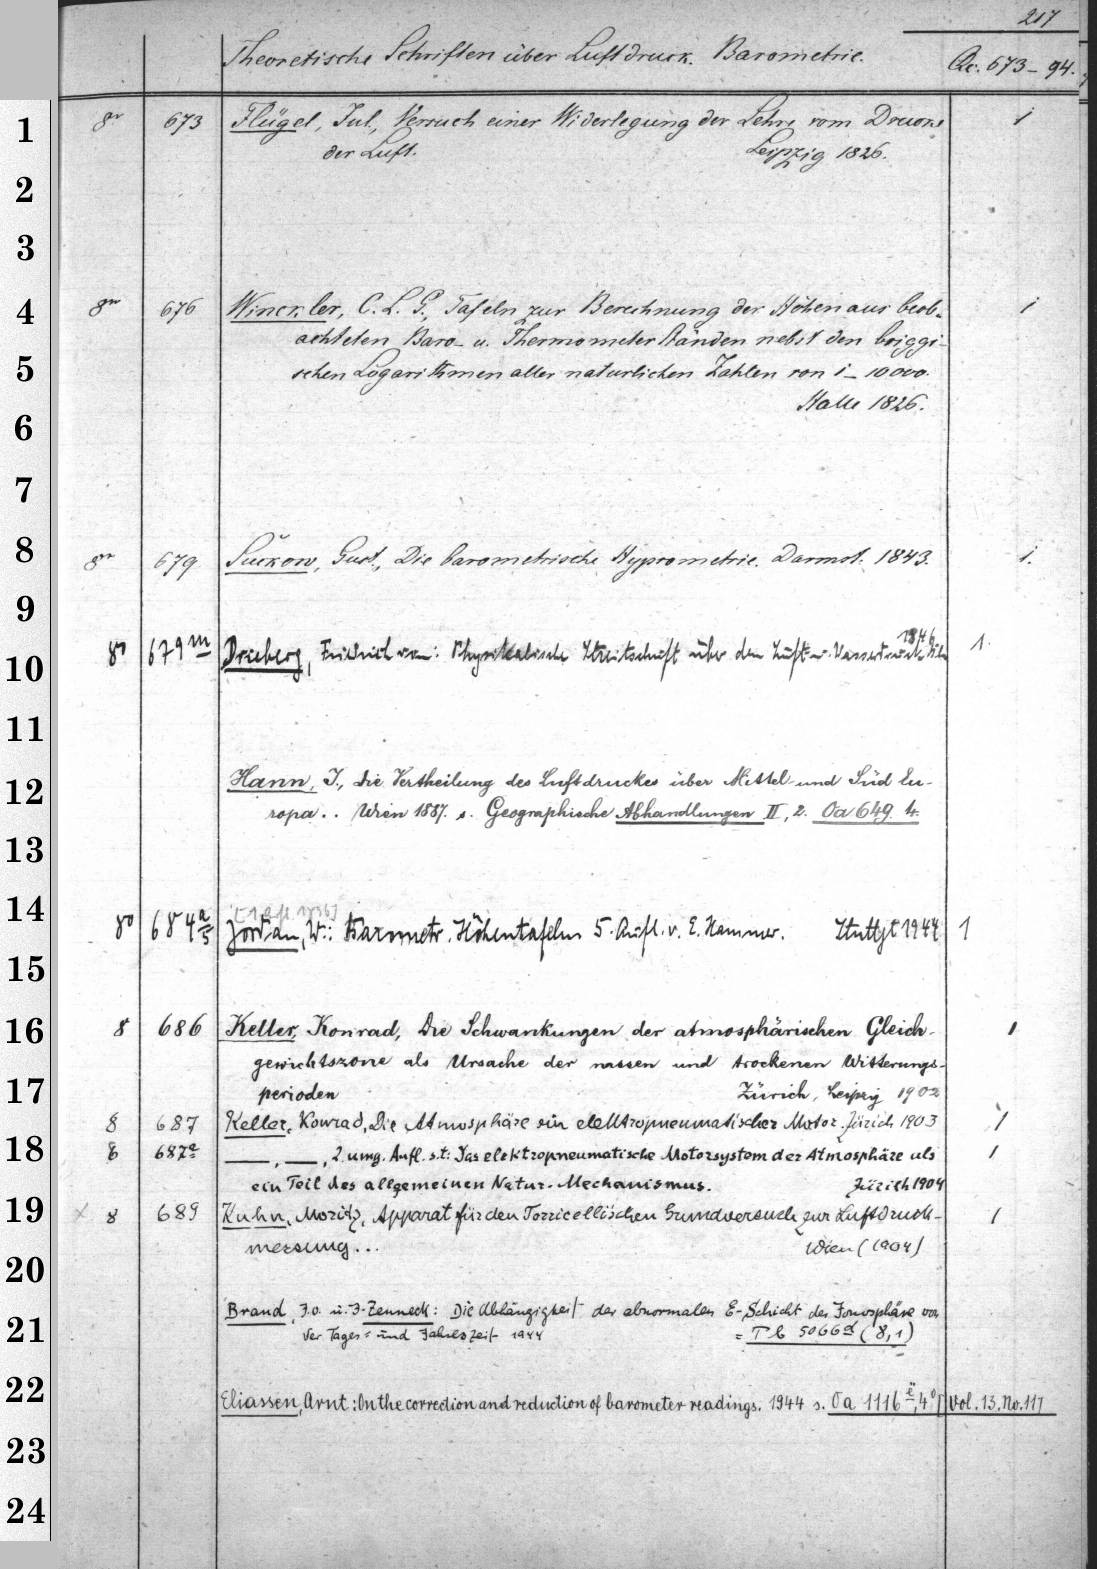 217
Theoretische Schriften über Luftdruck. Barometrie. Qc. 673-94.
1 8° 673 Flügel, Jul., Versuch einer Widerlegung der Lehre vom Drucke 1
der Luft. Leipzig 1826.
2
3
4 8° 676 Winckler, C. L. G., Tafeln zur Berechnung der Höhen aus beob- 1
achteten Baro- u. Thermometer Ständen nebst den briggi-
5 schen Logarithmen aller naturlichen Zahlen von 1-10000.
Halle 1826.
6
7
8 8° 679 Suckow, Gust., Die barometrische Hypsometrie. Darmst. 1843. 1.
9
1846
10 8° 679 m Drieberg, Friedrich von: Physikalische Streitschrift über den Luft- u. 1.
11
12 Hann, J., die Vertheilung des Luftdruckes über Mittel- und Süd Eu-
ropa.. Wien 1887. s. Geographische Abhandlungen II, 2. Oa 649. 4.
13
14 [1. Aufl. 
8° 684 a/5 Jordan, W.: Barometr. Höhentafeln 5. Aufl. v. E. Hammer. Stuttgt 1944 1
15
16 8 686 Keller, Konrad, Die Schwankungen der atmosphärischen Gleich- 1
gewichtszone als Ursache der nassen und trockenen Witterungs-
17 perioden Zürich, Leipzig 1902
8 687 Keller, Konrad, Die Atmosphäre ein elektropneumatischer Motor. Zürich 1903 1
18 8 687a ——, ——, 2. umg. Aufl. s.t: Das elektropneumatische Motorsystem der Atmosphäre als 1
ein Teil des allgemeinen Natur-Mechanismus. Zürich 1904
19 x 8 689 Kuhn, Moritz, Apparat für den Torricellischen Grundversuch zur Luftdruck- 1
messung... Wien (1904)
20
Brand, J.o. u. J. Zenneck: Die Abhängigkeit der abnormalen E-Schicht der Jonosphäre von
21 der Tages= und Jahreszeit 1944 = Tb 5066 d (8,1)
22 Eliassen, Arnt: On the correction and reduction of barometer readings. 1944 s. Oa 1116 ë, 4° [Vol. 13. No. 117
23
24